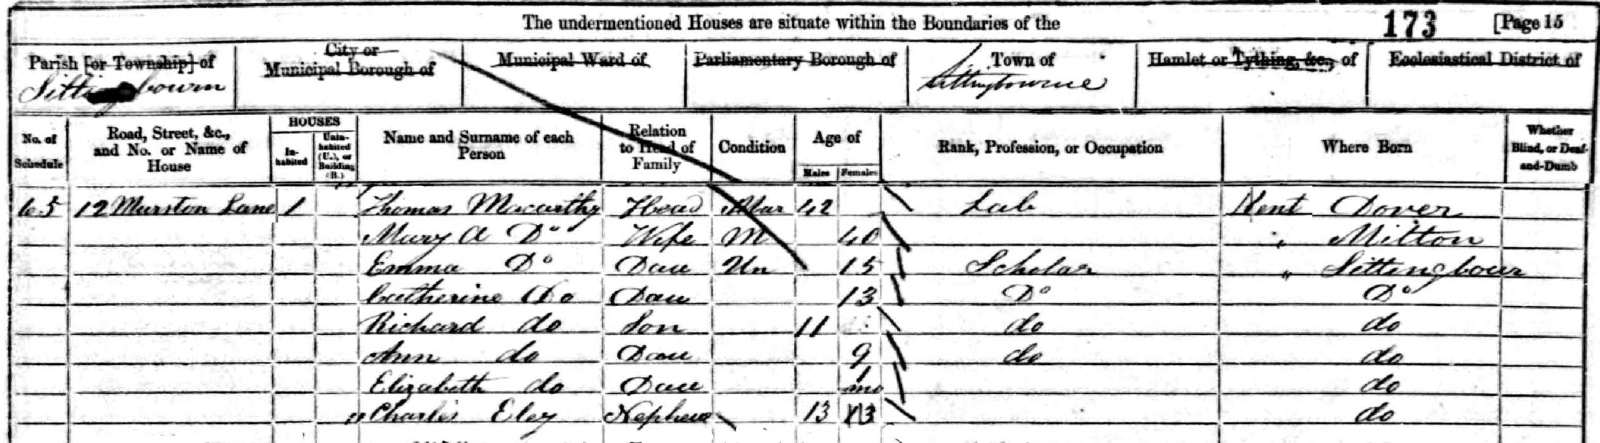 The undermentioned Houses are situate within the Boundaries of the 173 [Page 15
Parish [or Township] of City or Municipal Borough of Municipal Ward of Parliamentary Borough of Town of Hamlet or Tything, &c., of Ecclesiastical District of
Sittingbourn Sittingbourne
No. of Schedule Road, Street, &c., and No. or Name of House HOUSES Inhabited Uninhabited (U.), or Building (B.) Name and Surname of each Person Relation to Head of Family Condition Age of Males Females Rank, Profession, or Occupation Where Born Whether Blind, or Deaf-and-Dumb
65 12 Murston Lane 1 Thomas Mccarthy Head Mar 42 Lab Kent Dover
Mary A Do Wife M 40 " Milton
Emma Do Dau Un 15 Scholar " Sittingbour
Catherine Do Dau 13 Do Do
Richard do Son 11 do do
Ann do Dau 9 do do
Elizabeth do Dau 1 mo do
Charles Eley Nephew 13 13 do